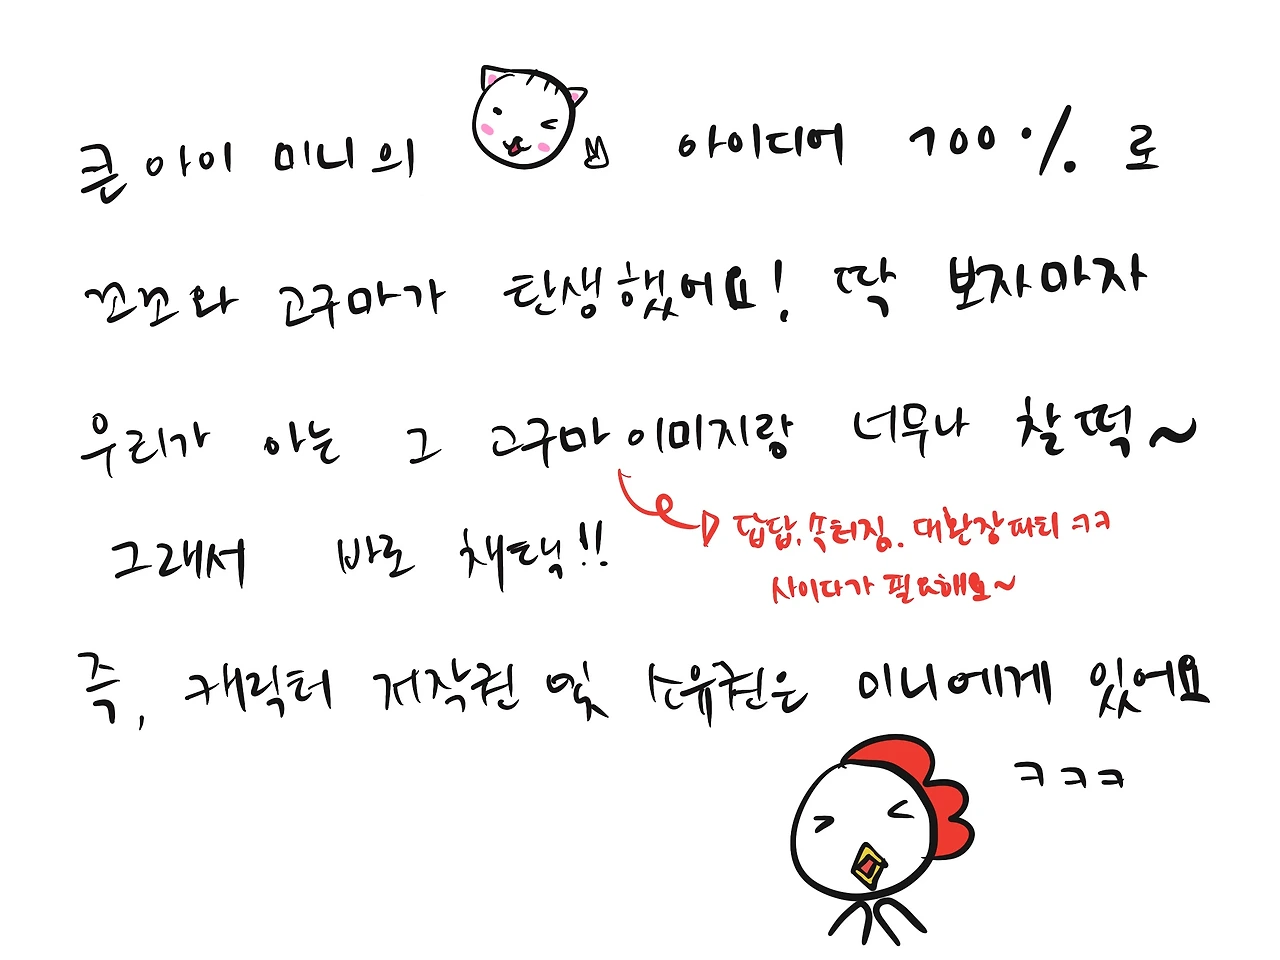 큰아이 미니의 아이디어 100%로
꼬꼬와 고구마가 탄생했어요! 딱 보자마자
우리가 아는 그 고구마 이미지랑 너무나 찰떡~
답답, 속터짐. 대환장파티 ㅋㅋ
그래서 바로 채택!!
사이다가 필요해요~
즉, 캐릭터 저작권 및 소유권은 미니에게 있어요
ㅋㅋㅋ